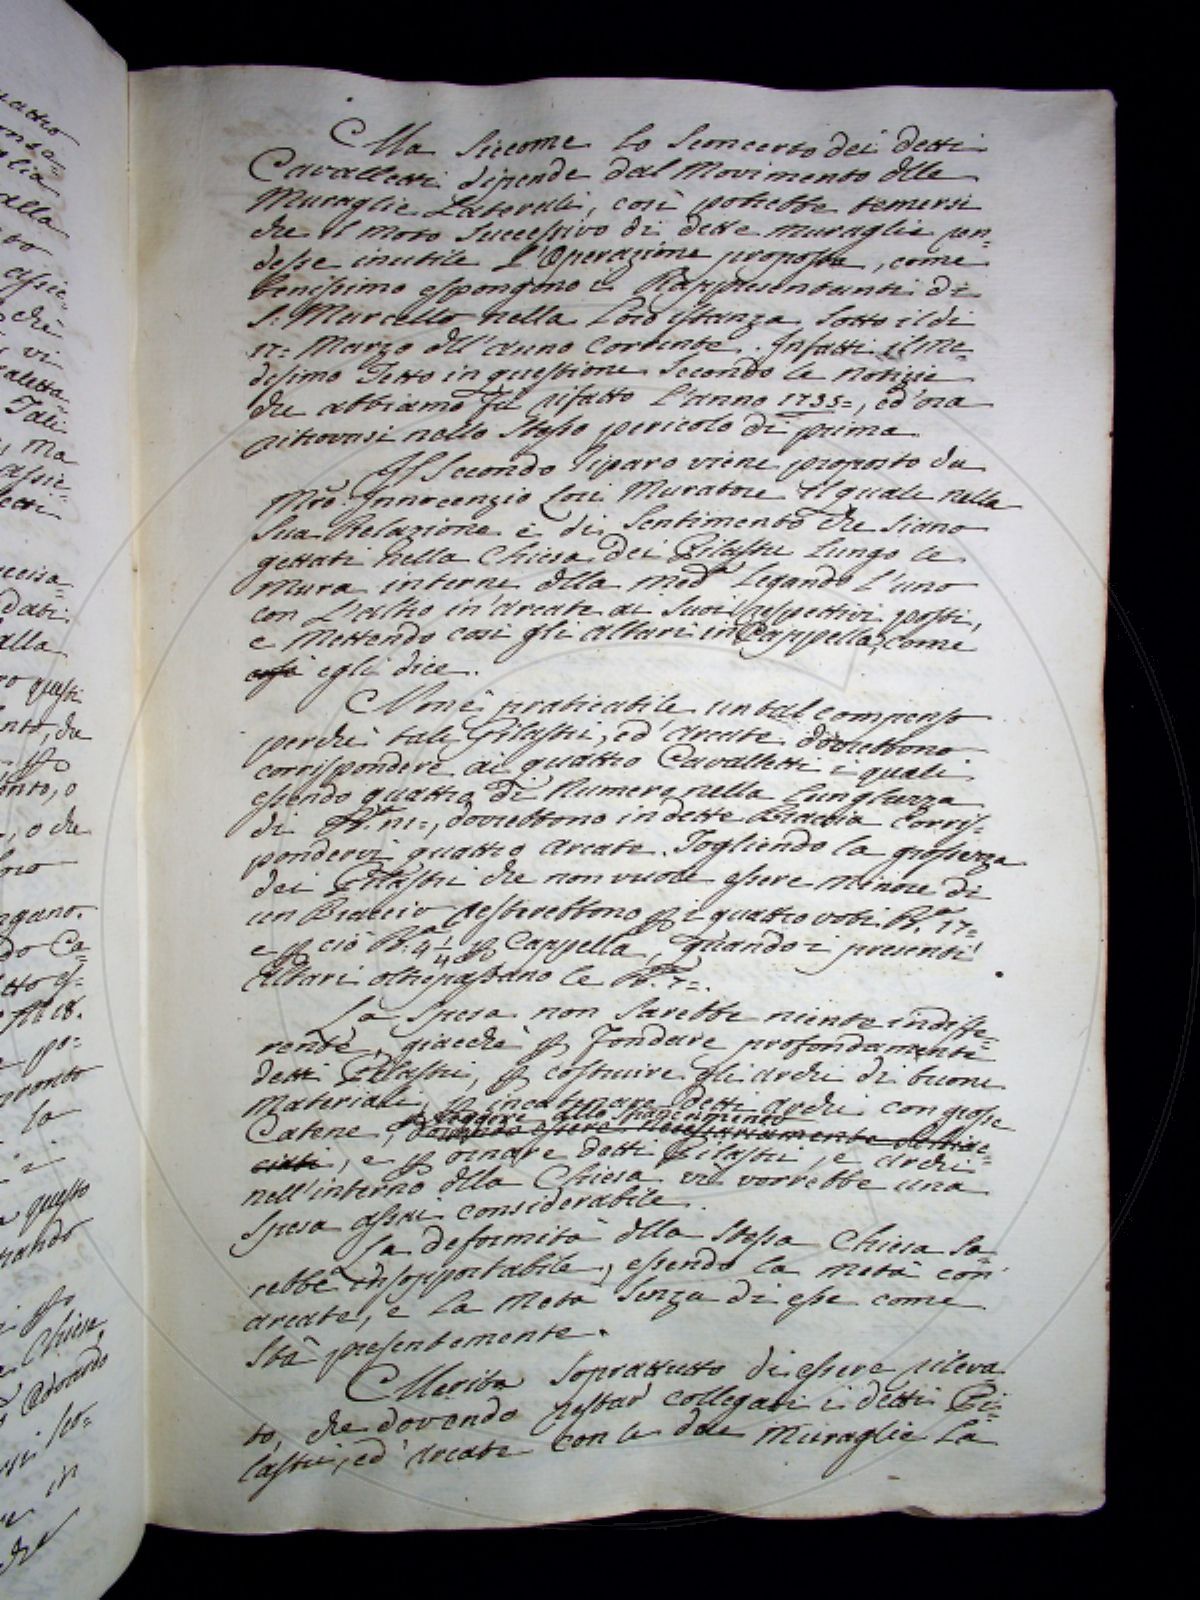 uattro
glia
alla
assie-
chè
vi
caletta-
Tali
ma
assie-
etti
recisa-
dati
alla
ro questi
nto, da
o che
loro
ngano.
do Ca-
po-
pronto
la
questo
Chiesa,
in
Ma siccome lo sconcerto dei detti
Cavalletti dipende dal Movimento dlle
Muraglie Laterali, così potrebbe temersi
che il moto successivo di dette muraglie ren-
desse inutile l'Operazione proposta, come
benissimo espongono i Rappresentanti di
S. Marcello nella Loro istanza sotto il dì
17= Marzo dll'anno Corrente. Infatti il me-
desimo Tetto in questione secondo le notizie
che abbiamo fù rifatto l'anno 1735=, ed'ora
ritrovasi nello stesso pericolo di prima
Il secondo riparo viene proposto da
Mro. Innocenzio Lori Muratore il quale nella
sua Relazione è di sentimento che siano
gettati nella Chiesa dei Pilastri lungo le
mura interne dlla medª. legando l'uno
con l'altro in'arcate ai suoi respettivi posti,
e mettendo così gli altari in Cappella, come
così egli dice.
Non'è praticabile un tal compenso
perchè tali Pilastri, ed'arcate dovrebbono
corrispondere ai quattro Cavalletti i quali
essendo quattro di Numero nella Lunghezza
di Bª. 21=, dovrebbono in dette Braccia corris-
pondervi quattro arcate. Togliendo la grossezza
dei Pilastri che non vuole essere minore di
un Braccio resterebbono p i quattro voti Bª. 17=
e p ciò Bª. 4 1/4 p Cappella, quando i presenti
Altari oltrepassano le Bª. 7=.
La spesa non sarebbe niente indiffe-
rente, giacchè p fondare profondamente
detti Pilastri, p costruire gli archi di buone
Materiale, p incatenare detti archi con grosse
p reggere allo spancamento
Catene, dovendo essere necessariamente
ciati, e p ornare detti Pilastri, e archi
nell'interno dlla Chiesa vi vorrebbe una
spesa assai considerabile.
La deformità dlla stessa Chiesa sa-
rebbe insopportabile, essendo la metà con
arcate, e la metà senza di esse come
stà presentemente.
Merita soprattutto di essere rileva-
to, che dovendo restar collegati i detti Pi-
lastri, ed'arcate con le due Muraglie La